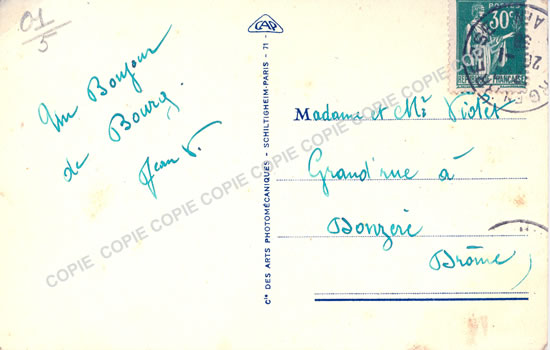 01
5
Un Bonjour
de Bourg.
Jean V.
CAP
Cie DES ARTS PHOTOMÉCANIQUES - SCHILTIGHEIM-PARIS - 71 -
POSTES
30c
Madame et Mr Violet
Grand'rue à
Donzère
Drôme
COPIE COPIE COPIE COPIE COPIE COPIE COPIE COPIE COPIE